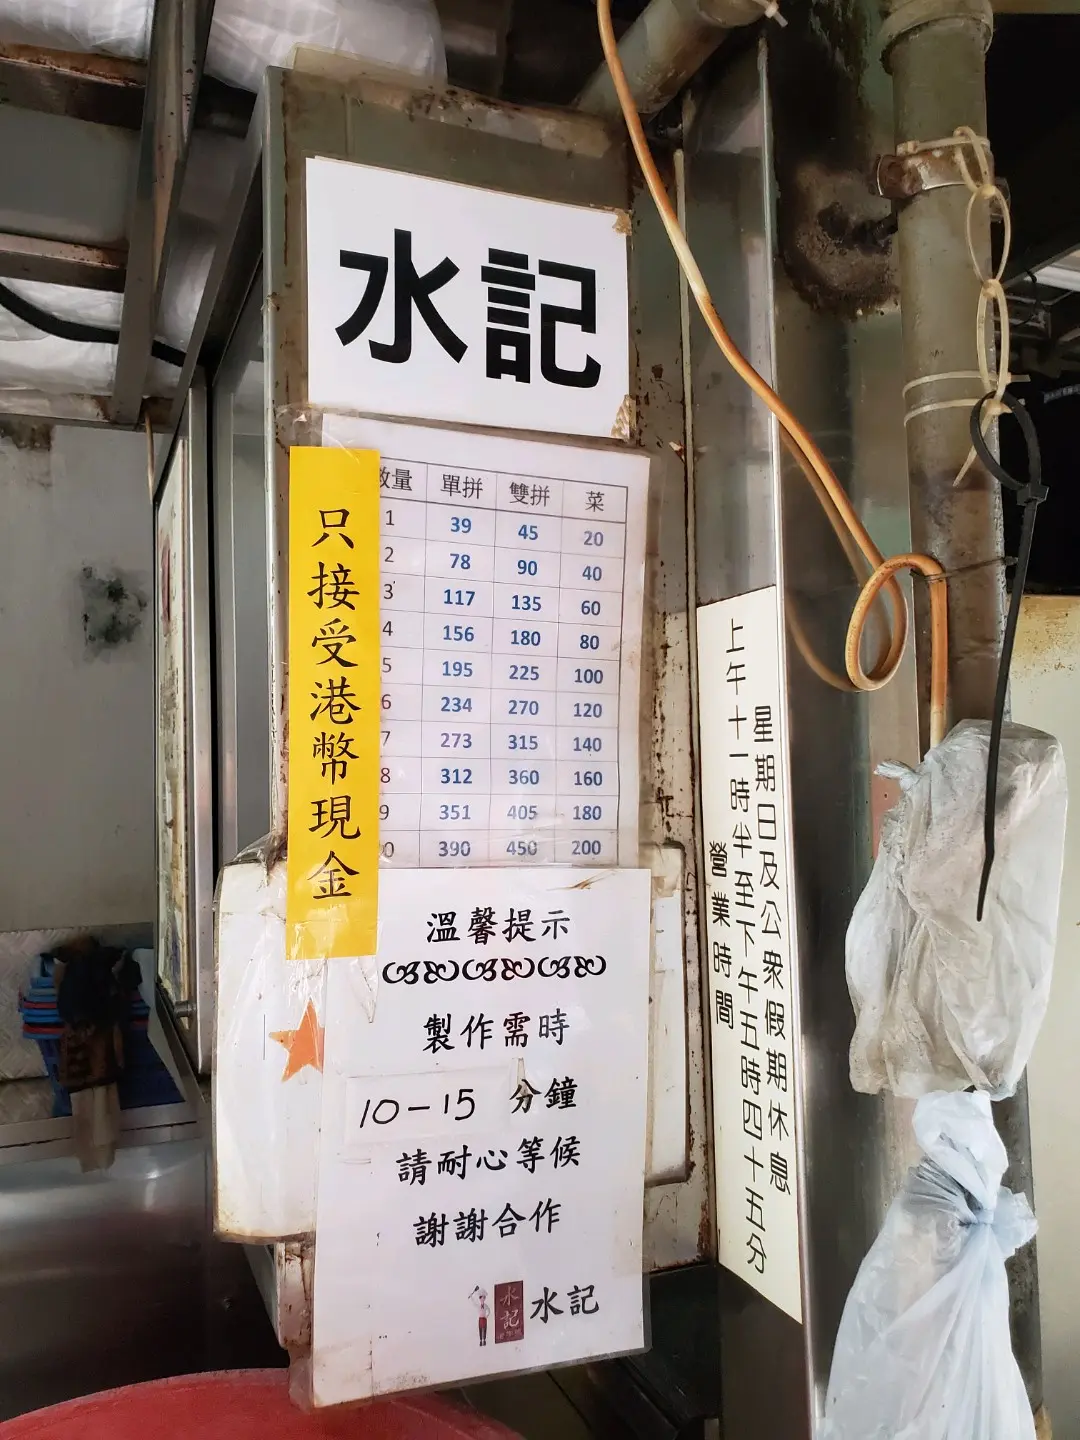 水記
只接受港幣現金
數量 單拼 雙拼 菜
1 39 45 20
2 78 90 40
3 117 135 60
4 156 180 80
5 195 225 100
6 234 270 120
7 273 315 140
8 312 360 160
9 351 405 180
0 390 450 200
溫馨提示
製作需時
10-15 分鐘
請耐心等候
謝謝合作
水記
水記
星期日及公眾假期休息
上午十一時半至下午五時四十五分
營業時間